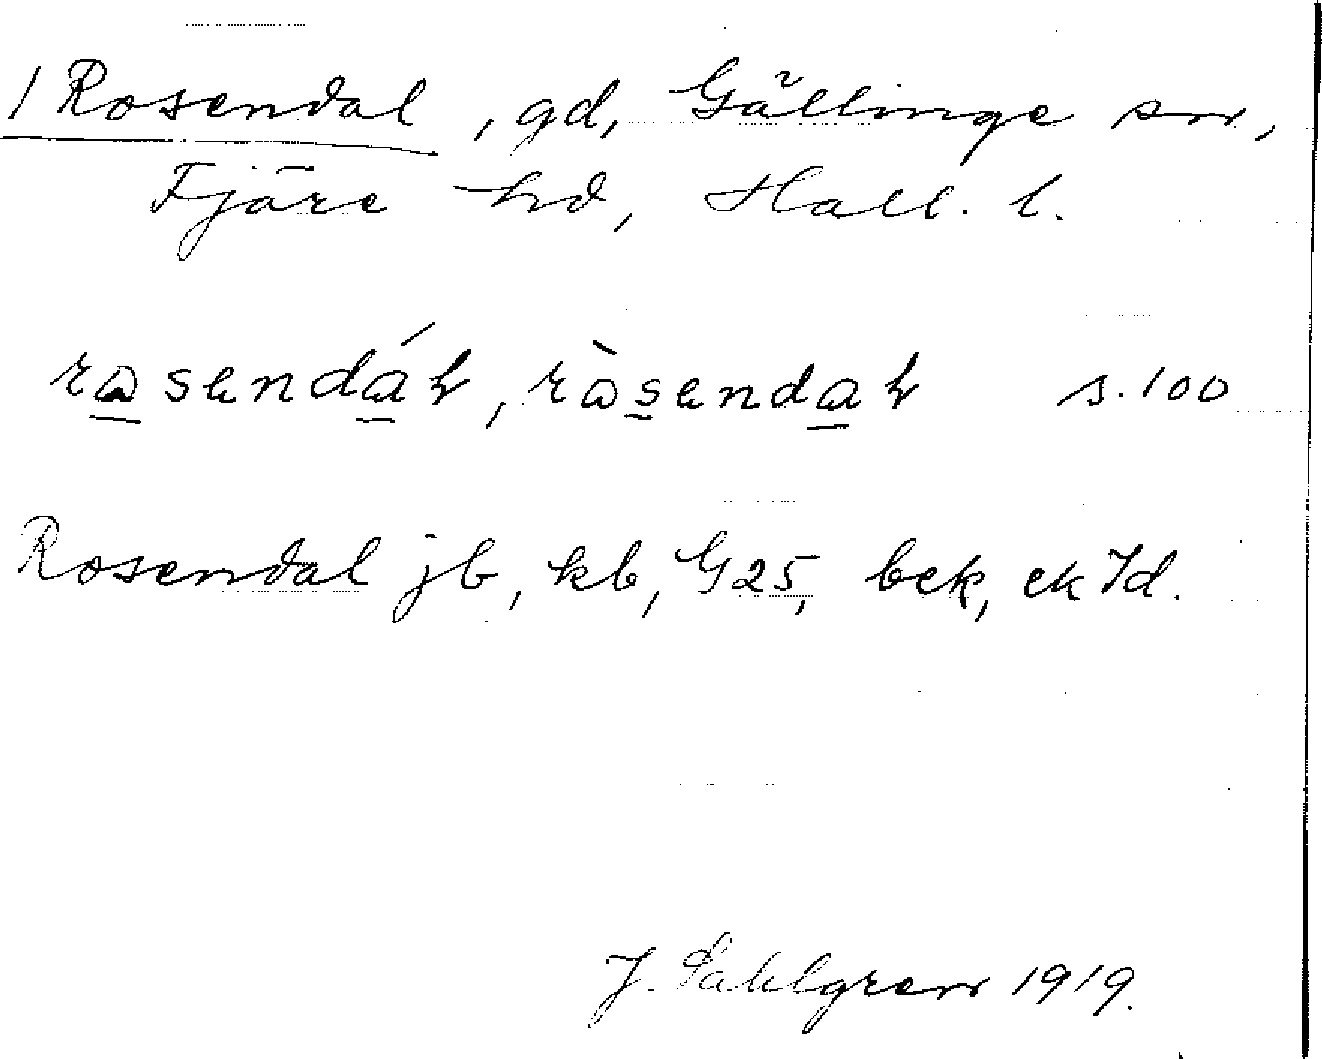 1 Rosendal, gd, Gällinge sn,
Fjäre hd, Hall. l.
rasendáł, ràsendał s.100
Rosendal jb, kb, G25, bek, ek Id.
J. Sahlgren 1919.